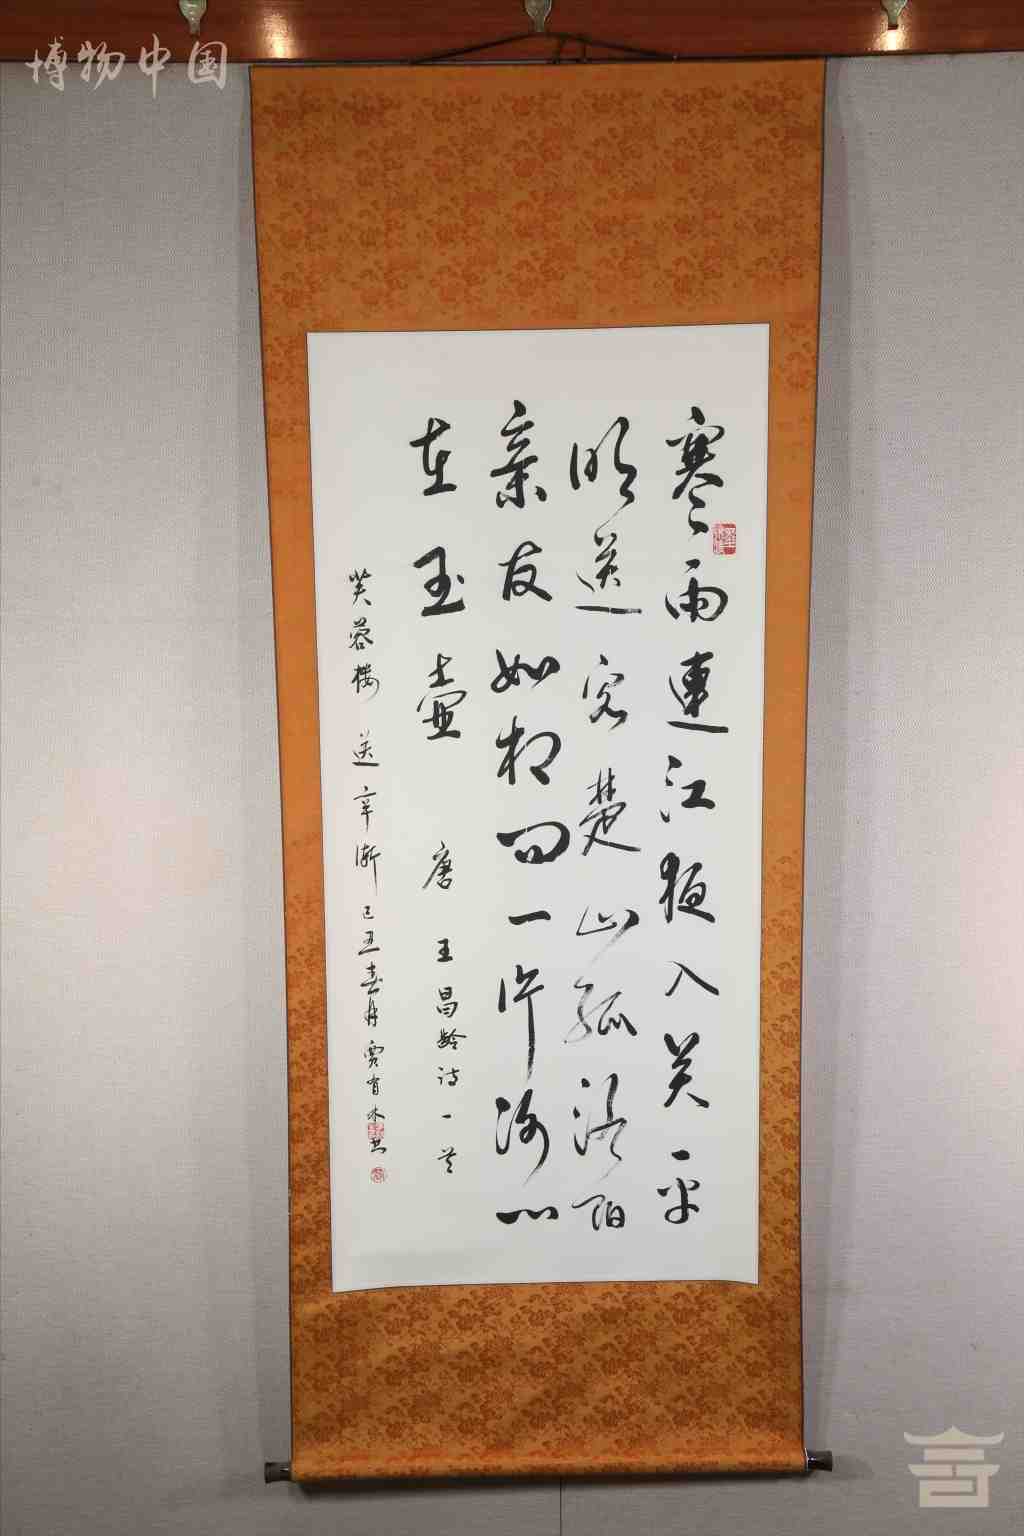 博物中国
寒雨連江夜入吴平
明送客楚山孤洛阳
亲友如相问一片冰心
在玉壶 唐 王昌龄诗一首
芙蓉楼送辛渐 己丑春月 有林书